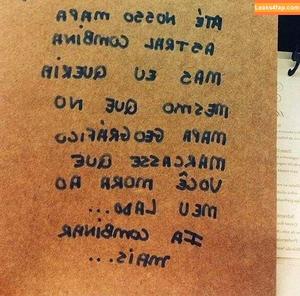 Leaks4fap.com
ATÉ NOSSO MAPA
ASTRAL COMBINA
MAS EU QUERIA
MESMO QUE NO
MAPA GEOGRÁFICO
MARCASSE QUE
VOCÊ MORA AO
MEU LADO...
IA COMBINAR
MAIS...